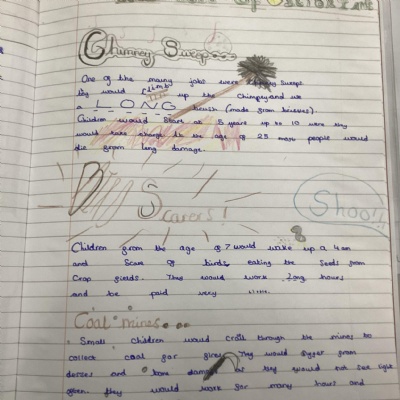 Chimney Sweep...
One of the many jobs were chimney sweeps
They would climb up the Chimney and use
a LONG brush (made from
Children would Start at 5 years up to 10 were they
would take charge to the age of 25 most people would
die from lung damage.
B S
carers!
Shoo!!
8
Children from the age of 7 would wake up a 4 am
and Scare of birds eating the seeds from
Crop fields. They would work long hours
and be paid very little.
Coal mines...
Small children would crall through the mines to
collect coal for fires They would suffer from
and bone damage as they would not see light
often. they would work for many hours and